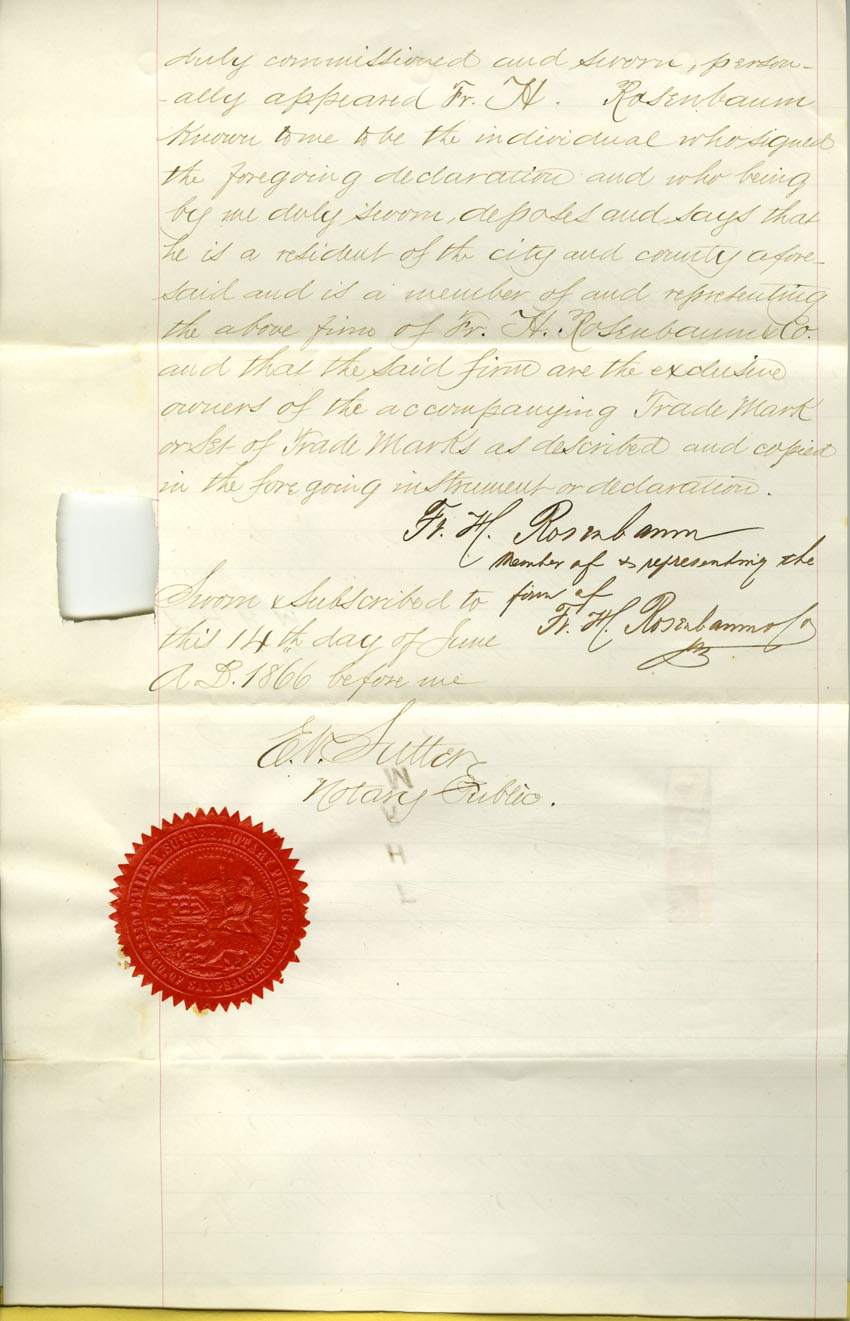 duly commissioned and sworn, person-
-ally appeared Fr. H. Rosenbaum
Known to me to be the individual who signed
the foregoing declaration and who being
by me duly sworn, deposes and says that
he is a resident of the city and county afore-
said and is a member of and representing
the above firm of Fr. H. Rosenbaum & Co.
and that the said firm are the exclusive
owners of the accompanying Trade Mark
or Set of Trade Marks as described and copied
in the foregoing instrument or declaration.
Fr. H. Rosenbaum
Member of & representing the
firm of
Fr. H. Rosenbaum & Co
Sworn & Subscribed to
this 14th day of June
A.D. 1866 before me
E. V. Sutter
Notary Public.
EMILE V. SUTTER. NOTARY PUBLIC
CITY & CO. OF SAN FRANCISCO CAL.